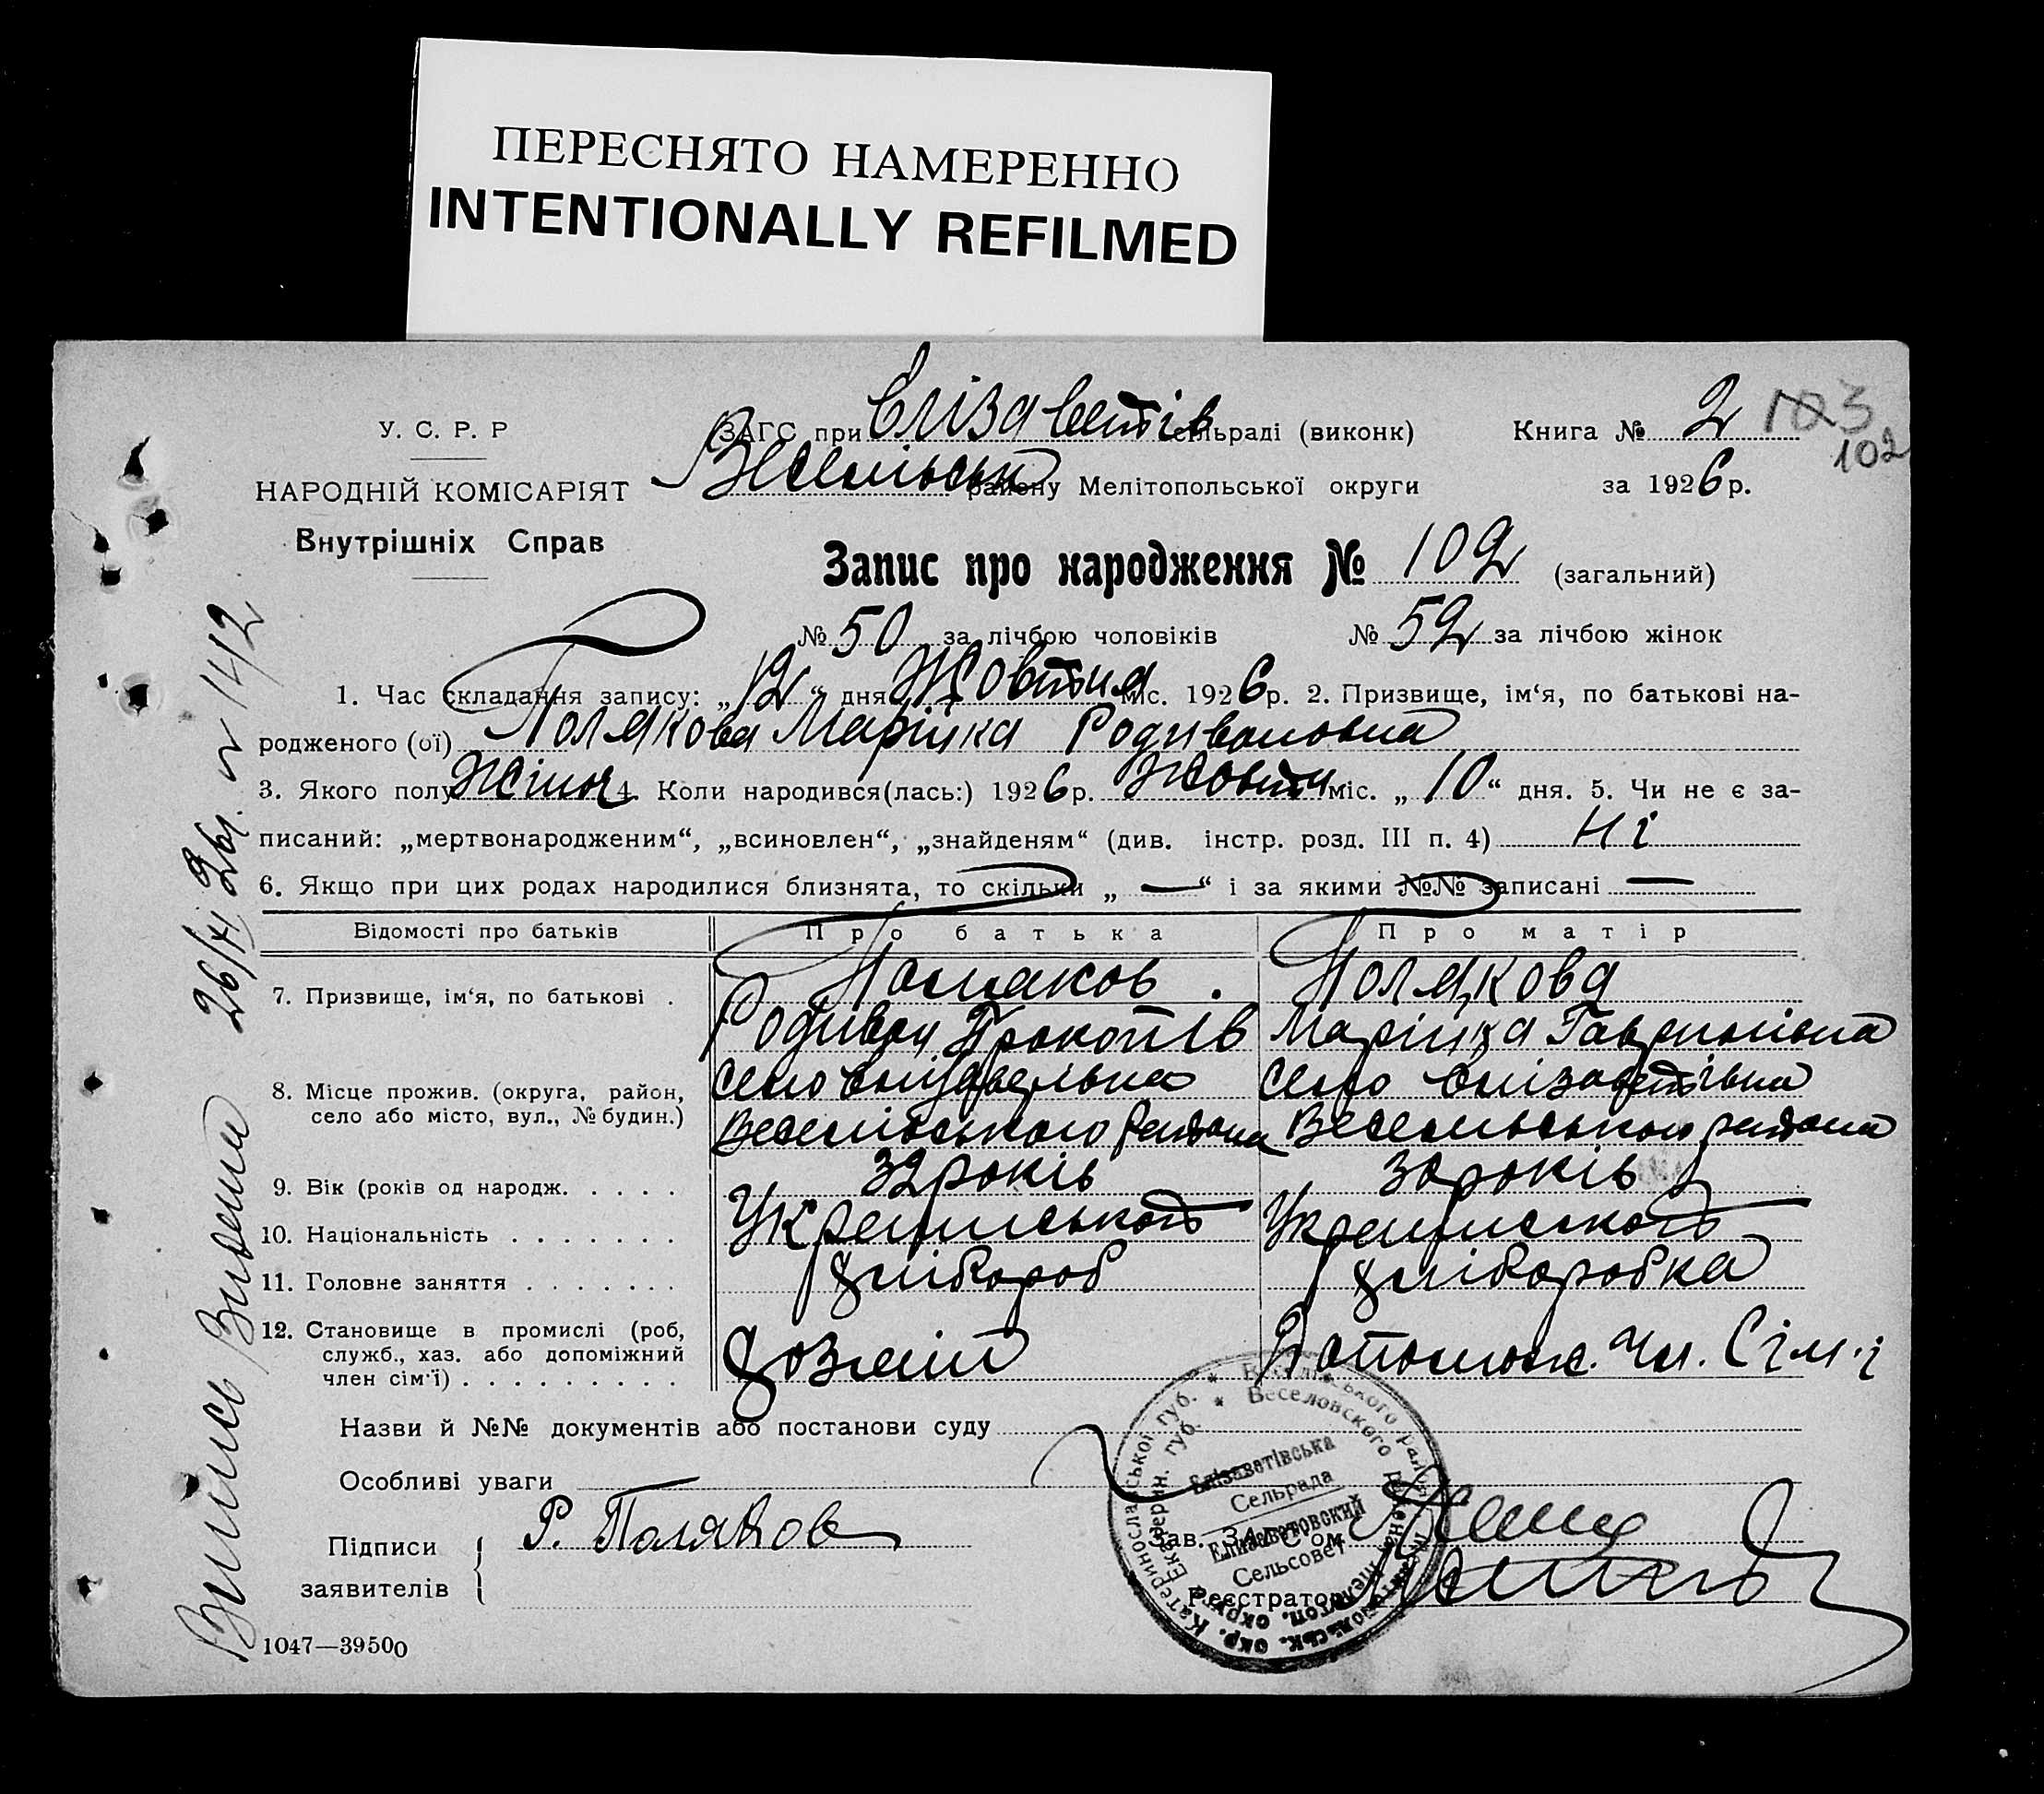 ПЕРЕСНЯТО НАМЕРЕННО
INTENTIONALLY REFILMED
У. С. Р. Р
НАРОДНІЙ КОМІСАРІЯТ
Внутрішніх Справ
ЗАГС при Єлізаветів сільраді (виконк)
Веселівськ району Мелітопольської округи
Книга № 2 103
102
за 1926 р.
Запис про народження № 102 (загальний)
№ 50 за лічбою чоловіків № 52 за лічбою жінок
1. Час складання запису: „12“ дня Жовтня міс. 1926 р. 2. Призвище, ім‘я, по батькові на-
родженого (ої) Полякова Марійка Родивоновна
3. Якого полу Жіноч 4. Коли народився(лась:) 1926 р. Жовтн міс. „10“ дня. 5. Чи не є за-
писаний: „мертвонародженим“, „всиновлен“, „знайденям“ (див. інстр. розд. III п. 4) Ні
6. Якщо при цих родах народилися близнята, то скільки „ — “ і за якими №№ записані —
Відомості про батьків Про батька Про матір
7. Призвище, ім‘я, по батькові . Поляков. Полякова
Родивон Прокопів Марійка Гаврилівна
8. Місце прожив. (округа, район, село або місто, вул., № будин.) Село Єлізаветівка Село Єлізаветівка
Веселівського района Веселівського района
9. Вік (років од народж. . . . . 32 років 30 років
10. Національність . . . . . . . Українського Українського
11. Головне заняття . . . . . . . хлібороб хліборобка
12. Становище в промислі (роб, служб., хаз. або допоміжний член сім‘ї) . . . . . . . . . хозяїн Допомож. Чл. Сім'ї
Назви й №№ документів або постанови суду
Особливі уваги
Підписи заявителів Р. Поляков
Зав. ЗАГС‘ом
Реєстратор
Катеринославської губ. * Веселівського району Мелітопольськ. окр.
Екатерин. губ. * Веселовского района Мелитоп. округа
Елізаветівська
Сельрада
Елизаветовский
Сельсовет
1047—39500
Выпись Выдана 26/XI 26г. № 1412